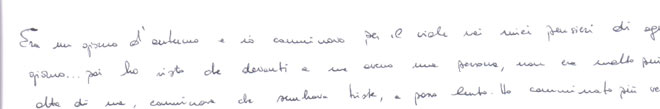 Era un giorno d'autunno e io camminavo per il viale nei miei pensieri di ogni
giorno... poi ho visto che davanti a me avevo una persona, non era molto più
alta di me, camminava che sembrava triste, a passo lento. Ho camminato più ve